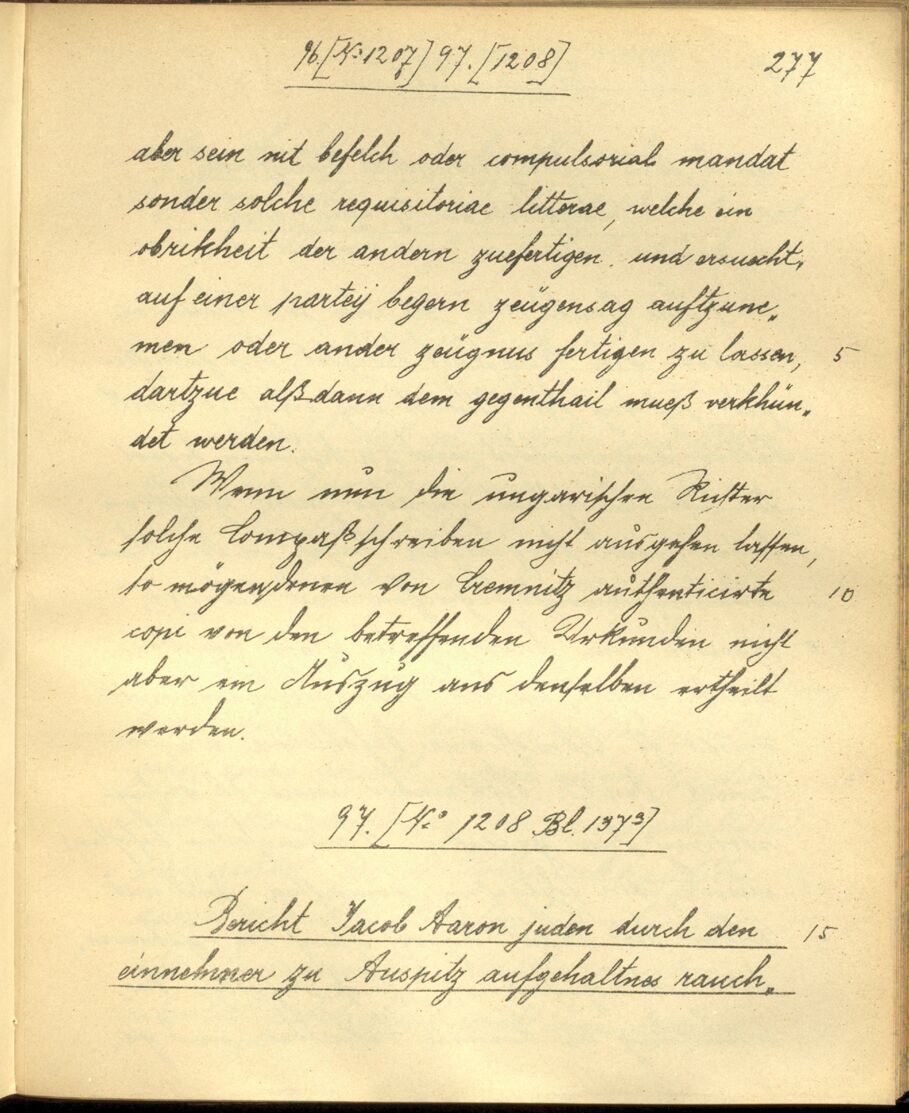 96. [No 1207] 97. [1208] 277
aber sein nit befelch oder compulsorial mandat
sonder solche requisitoriae litterae, welche ein
obrikheit der andern zuefertigen und ersuecht,
auf einer partey begern zeügensag auftzune„
men oder ander zeügnus fertigen zu lassen, 5
dartzue alß dann dem gegenthail mueß verkhün„
det werden.
Wenn nun die ungarischen Richter
solche Compaßschreiben nicht ausgehen lassen,
so mögen denen von Cremnitz authenticirte 10
copi von den betreffenden Urkunden nicht
aber ein Auszug aus denselben ertheilt
werden.
97. [No 1208 Bl. 1373]
Bericht Jacob Aaron juden durch den 15
einnehmer zu Auspitz aufgehaltnes rauch„